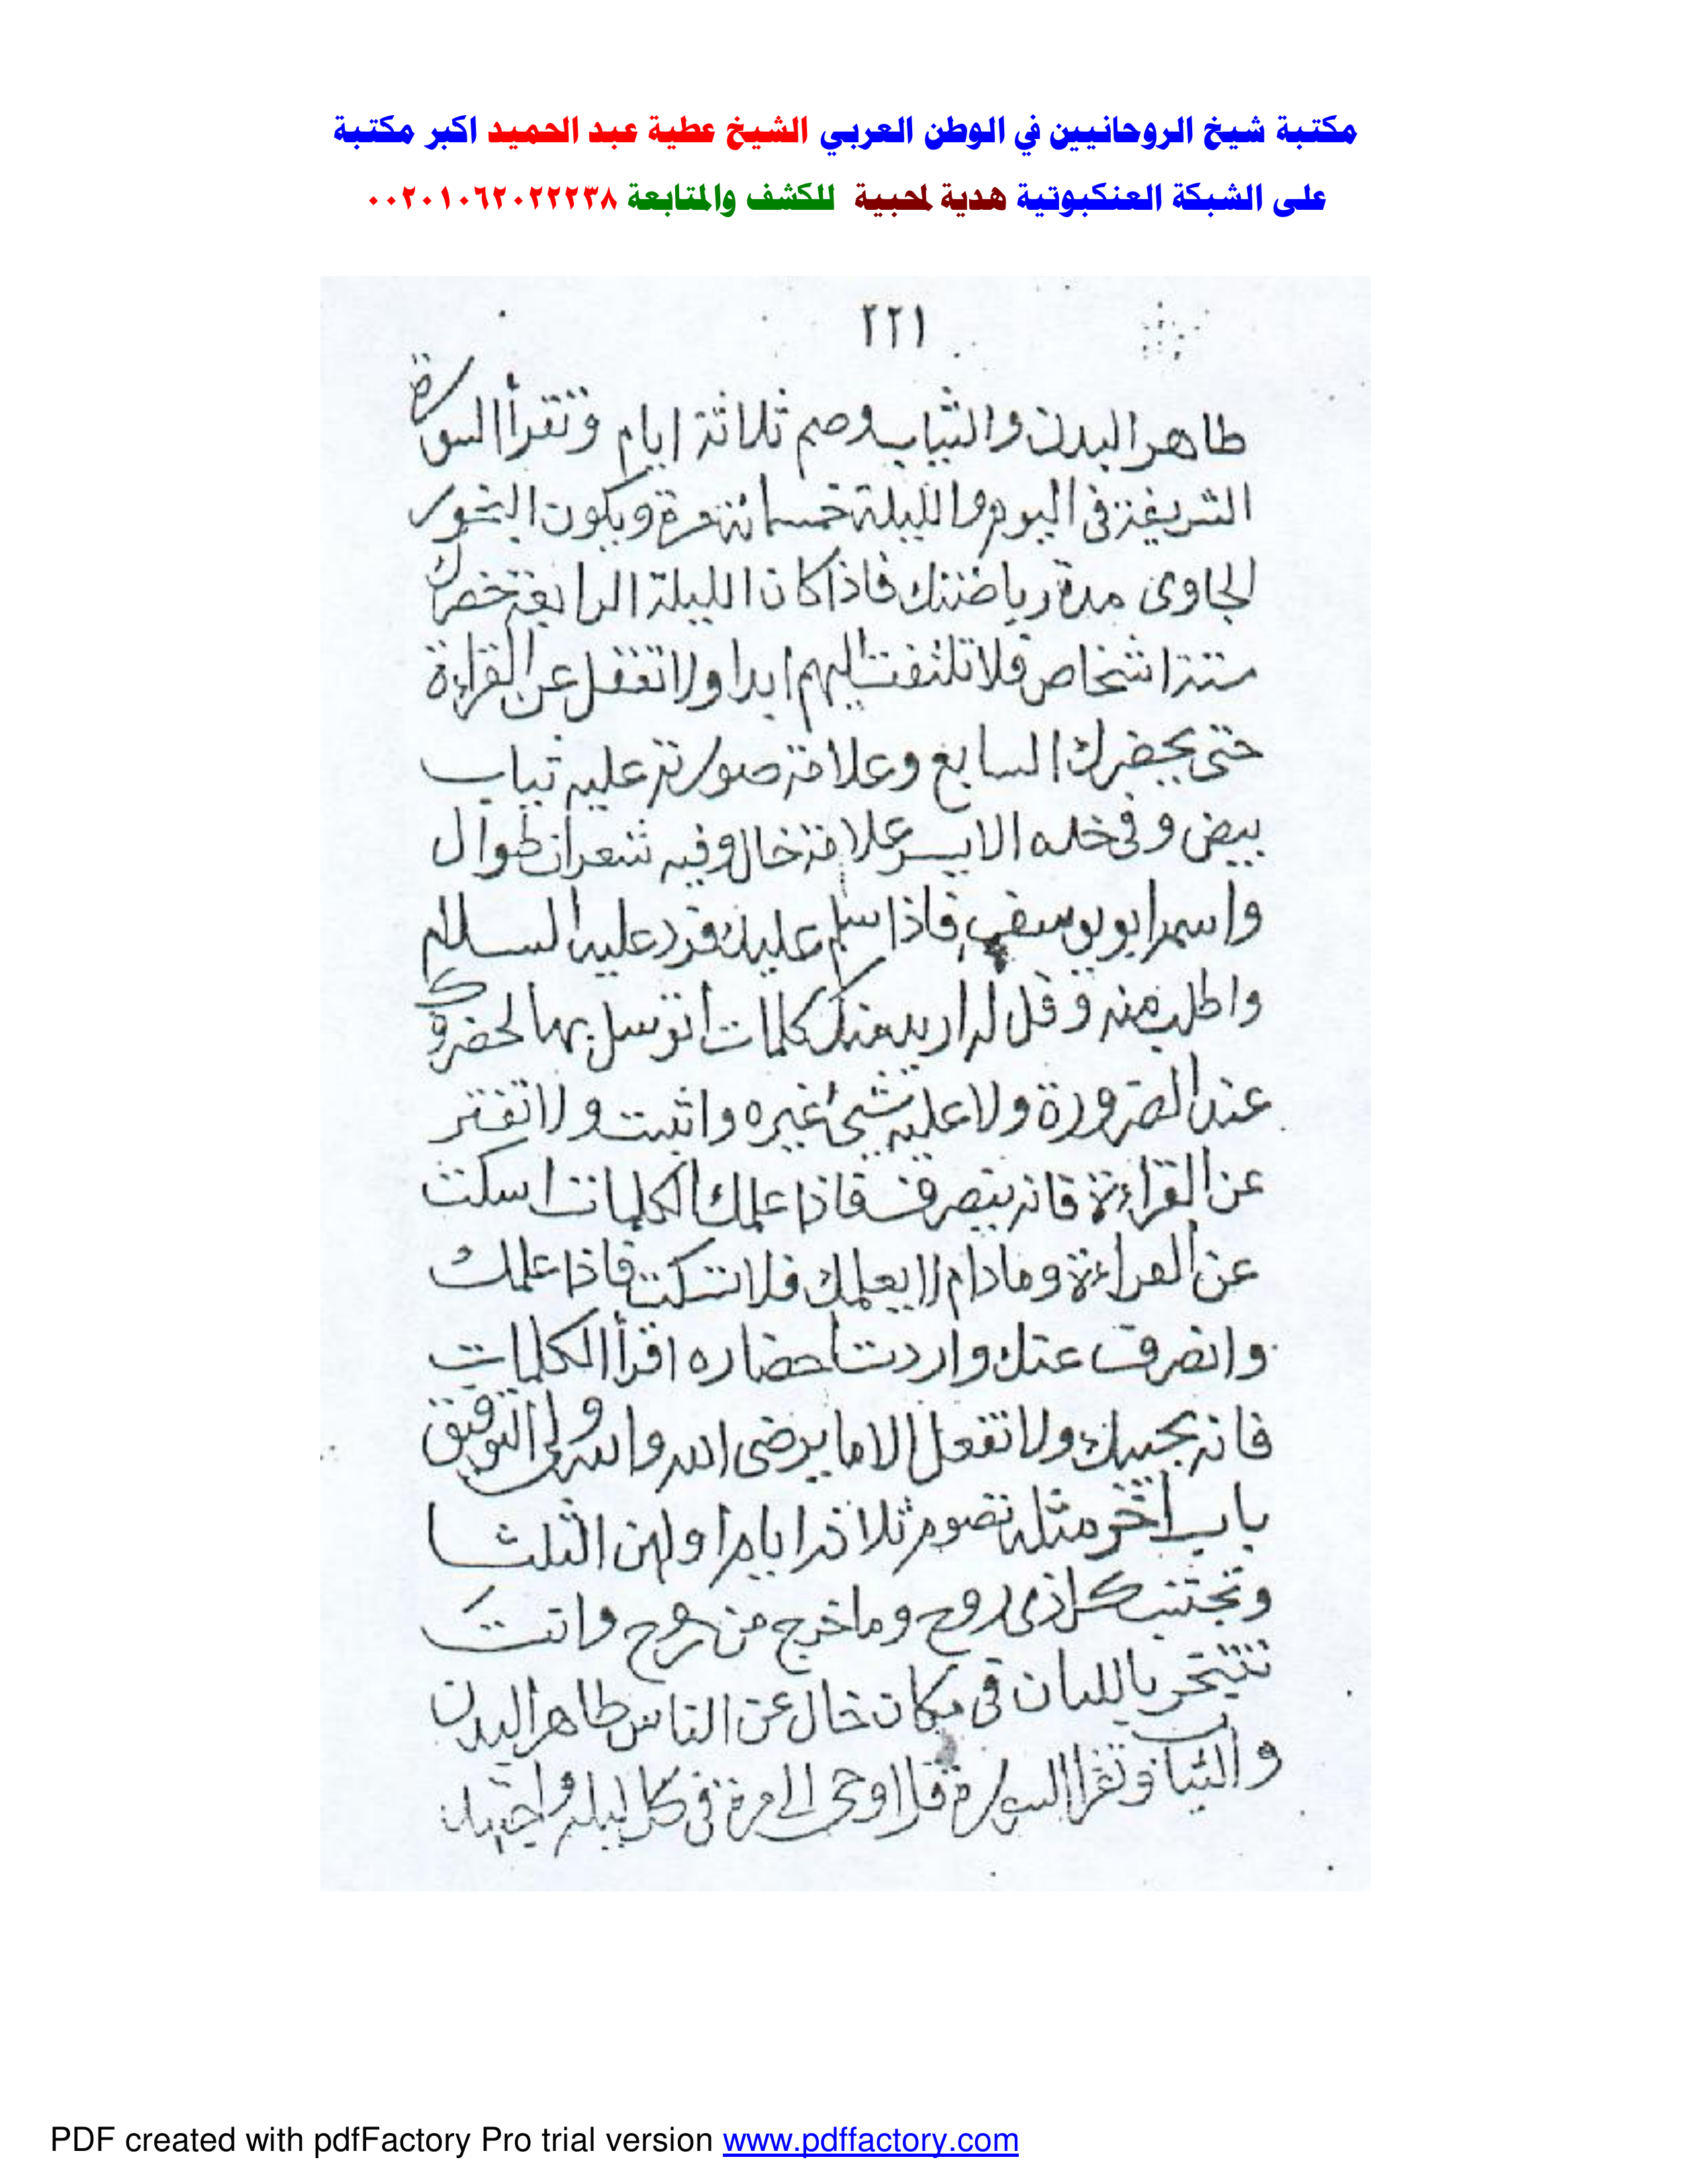 مكتبة شيخ الروحانيين في الوطن العربي الشيخ عطية عبد الحميد اكبر مكتبة
على الشبكة العنكبوتية هدية لمحبية للكشف والمتابعة ٠٠٢٠١٠٦٢٠٢٢٢٣٨
٢٢١
طاهر البدن والثياب وصم ثلاثة ايام وتقرأ السورة
الشريفة فى اليوم والليلة خمسمائة مرة ويكون البخور
الجاوى مدة رياضتك فاذا كان الليلة الرابعة تحضرك
ستة اشخاص فلا تلتفت اليهم ابدا ولا تغفل عن القراءة
حتى يحضرك السابع وعلامة صورته عليه ثياب
بيض وفى خده الايسر علامة خال وفيه شعرات طوال
واسمه ابو يوسف فاذا سلم عليك فرد عليه السلام
واطلب منه وقل له اريد منك كلمات اتوسل بها لحضرتك
عند الضرورة ولا عليه شئ غيره واثبت ولا تفتر
عن القراءة فانه ينصرف فاذا علمك الكلمات اسكت
عن القراءة ومادام لا يعلمك فلا تسكت فاذا علمك
وانصرف عنك واردت احضاره اقرأ الكلمات
فانه يجيبك ولا تفعل الا ما يرضى الله والله ولى التوفيق
باب آخر مثله تصوم ثلاثة ايام اولهن الثلثا
وتجتنب كل ذى روح وما خرج من روح وانت
تتبخر باللبان فى مكان خال عن الناس طاهر البدن
والثياب وتقرا السورة قل اوحى الى مرة فى كل ليلة واجتهد
PDF created with pdfFactory Pro trial version www.pdffactory.com